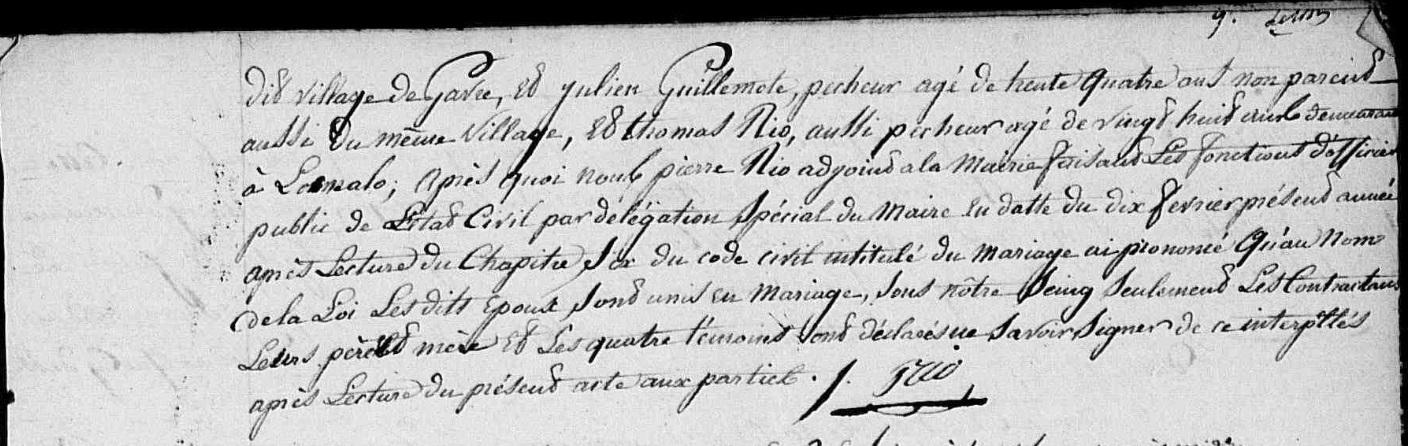 dit village de Gavre, et julien Guillemote, pecheur agé de trente quatre ans non parent
aussi du même village, et thomas Rio, aussi pecheur agé de vingt huit ans demeurant
à Locmalo, après quoi nous pierre Rio adjoint a la Mairie faisant Les fonctions d'officier
public de L'état Civil par délégation spécial du Maire en datte du dix fevrier présent année
après Lecture du Chapitre six du code civil intitulé du Mariage ai prononcé Qu'au Nom
de la Loi Les dits Epoux sont unis en Mariage, sous nôtre seing seulement Les Contractans
Leurs père et mère et Les quatre témoins sont déclarés ne savoir signer de ce interpellés
après Lecture du présent acte aux parties. /. Rio